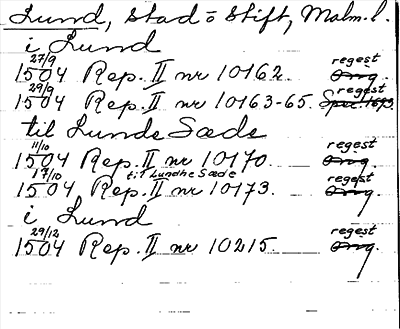 Lund, Stad o Stift, Malm. l.
i Lund
27/9 regest
1504 Rep. II nr 10162. Orig.
29/9 regest
1504 Rep. II nr 10163-65. Spec. 1693.
til Lunde Sæde
11/10 regest
1504 Rep. II nr 10170. Orig.
17/10 til Lundhe Sæde regest
1504 Rep. II nr 10173. Orig.
i Lund
29/12 regest
1504 Rep. II nr 10215. Orig.